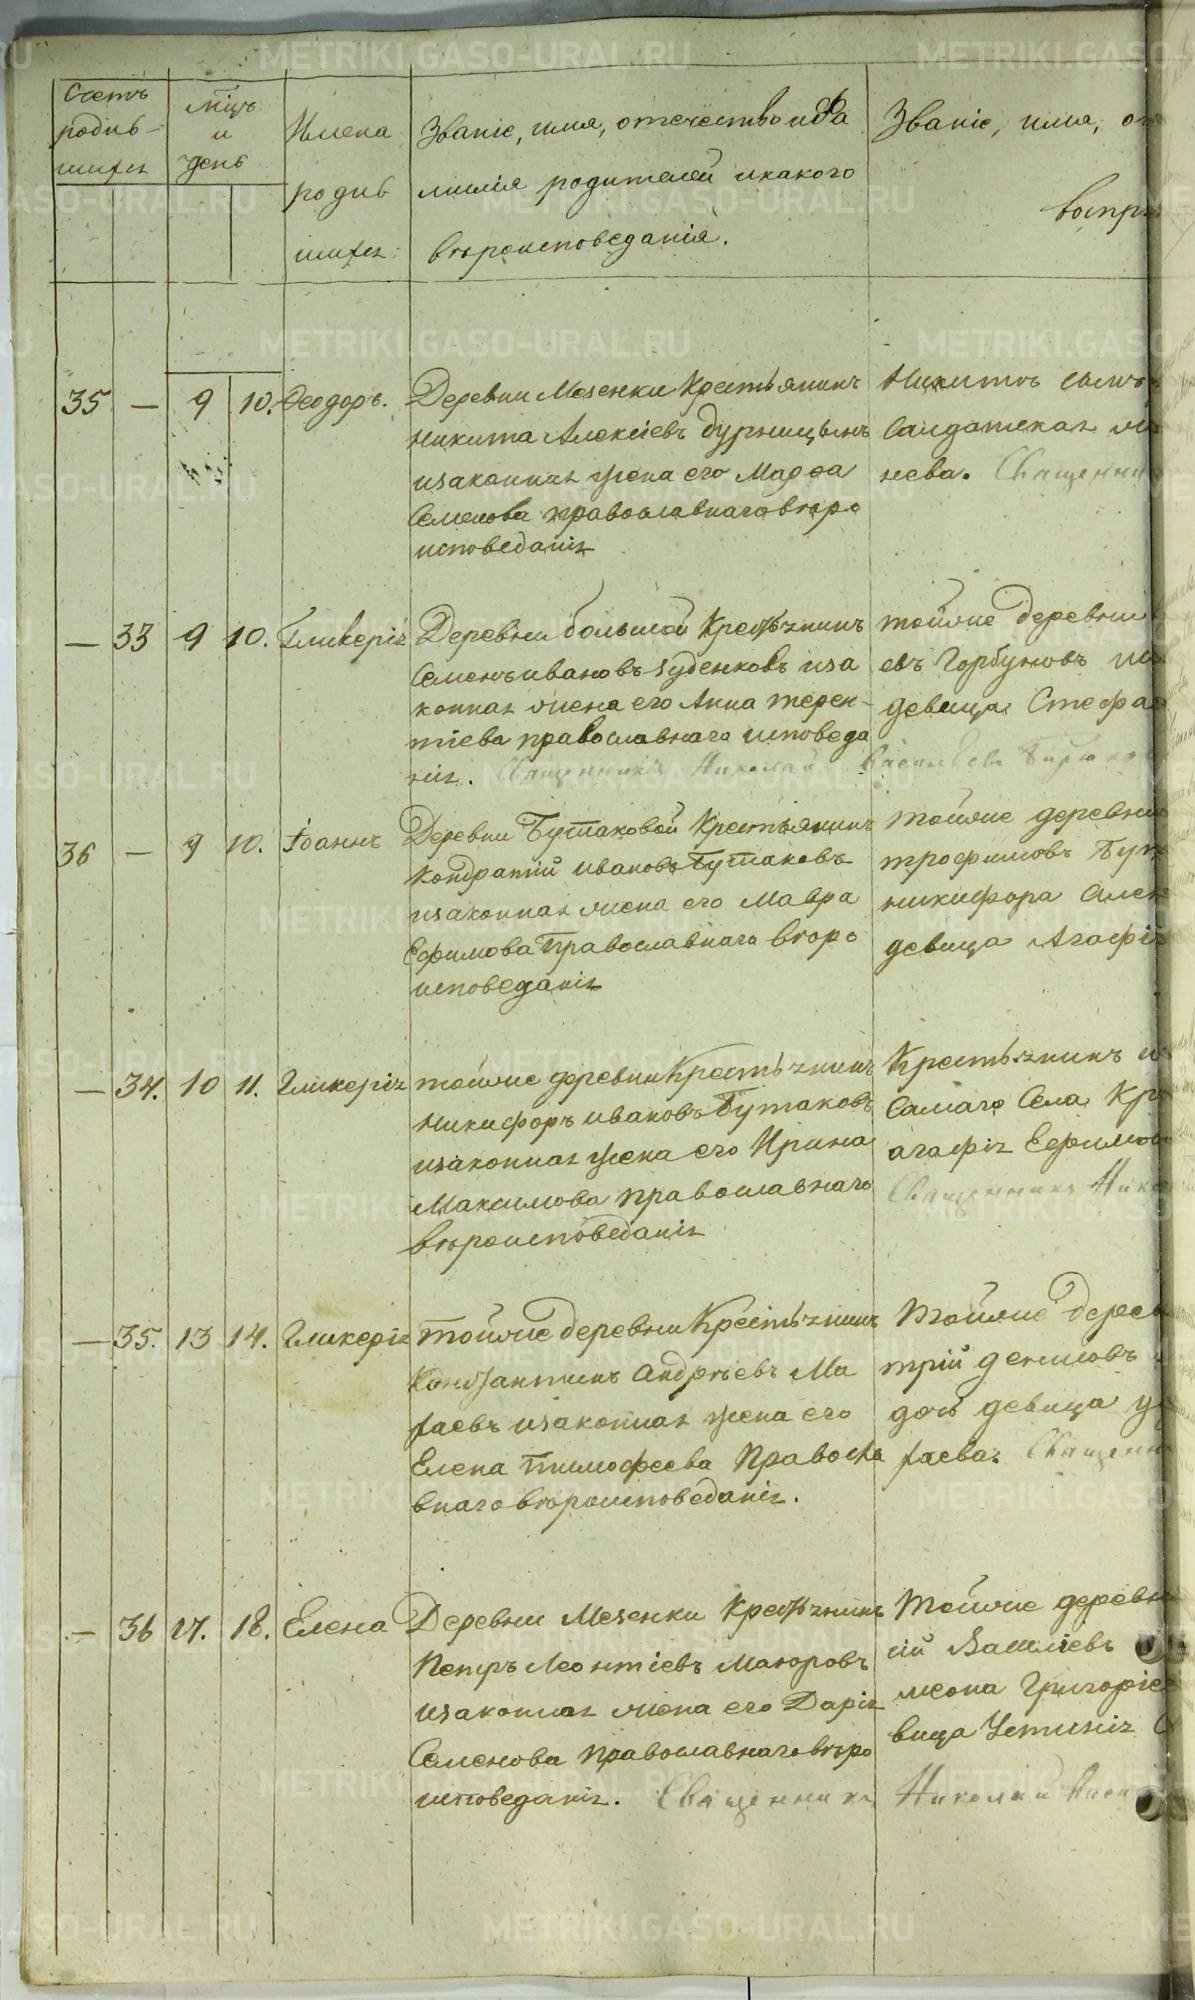 Счетъ
родив-
шихъ
Мѣцъ
и
день
Имена
родив
шихъ
Званіе, имя, отечество и Фа
милія родителей и какого
вѣроисповеданія.
Званіе, имя,
воспр
35 — 9 10. Феодоръ.
Деревни Мезенки Крестьянинъ
Никита Алексіевъ Дурницынъ
изаконная жена его Марфа
Семенова православнаго вѣро
исповеданія
Никитъ
Салдатская
нева. Священни
— 33 9 10. Гликерія
Деревни большой Крестьянинъ
Семенъ ивановъ Зуденковъ иза
конная жена его Анна терен-
тіева православнаго исповеда
нія. Священникъ Николай Васильевъ Бирюков
тойже деревни
евъ Горбуновъ
девица Стефа
36 — 9 10. Іоаннъ
Деревни Бутаковой Крестьянинъ
Кондратій ивановъ Бутаковъ
изаконная жена его Мавра
Ефимова Православнаго вѣро
исповеданія
тойже деревни
трофимовъ Бут
никифора
девица Агафі
— 34. 10 11. Гликерія
тойже деревни Крестьянинъ
Никифоръ ивановъ Бутаковъ
изаконная жена его Ирина
Максимова Православнаго
вѣроисповеданія
Крестьянинъ
Самаго Села Кр
агафія Ефимов
Священникъ Нико
— 35. 13 14. Гликерія
тойже деревни Крестьянинъ
Константинъ Андрѣевъ Ма
ѣаевъ изаконная жена его
Елена Тимофеева Правосла
внаго вѣроисповеданія.
Тойже дерев
трій денисовъ
дочь девица
ѣаева. Священн
— 36 17. 18. Елена
Деревни Мезенки Крестьянинъ
Петръ Леонтіевъ Маюровъ
изаконная жена его Дарія
Семенова Православнаго вѣро
исповеданія. Священникъ Николай
Тойже деревн
ій Василіевъ
меона Григоріе
вица Устинія
METRIKI.GASO-URAL.RU